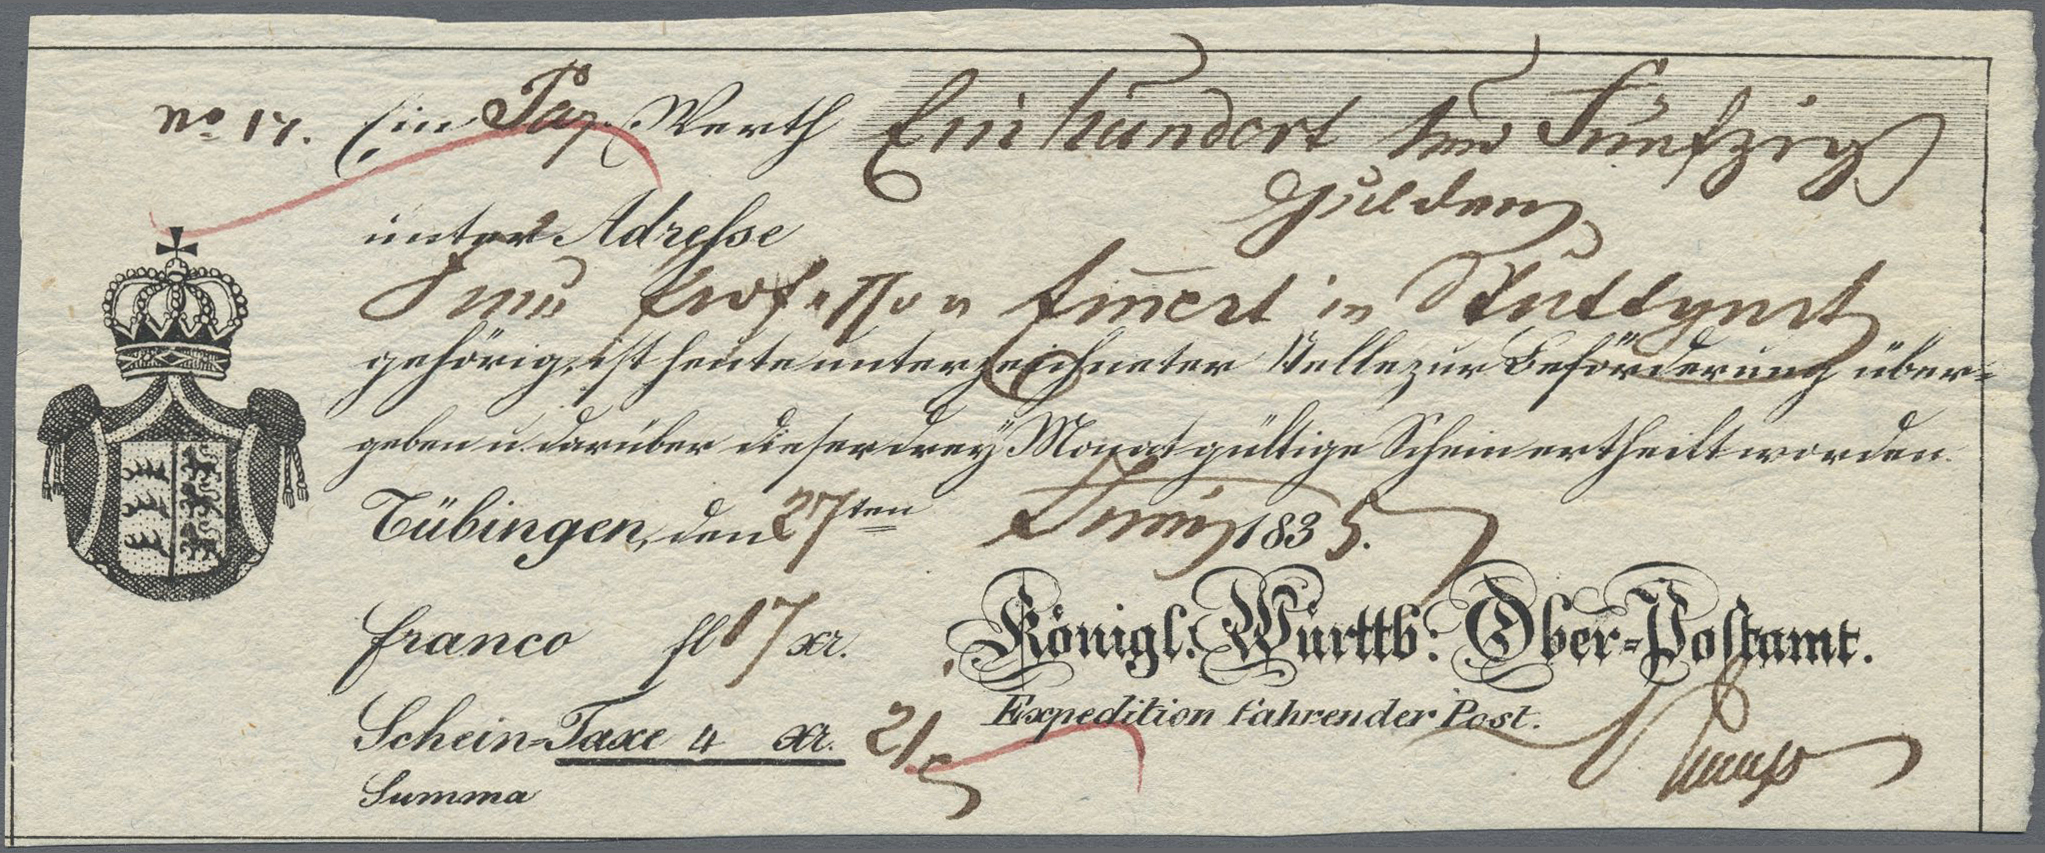 No 17. Ein Paq. Werth Ein hundert und Fünfzig
Gulden
unter Adresse
Professor in Stuttgart
gehörig, ist heute unterzeichneter Stelle zur Beförderung über-
geben u. darüber dieser drey Monat gültige Schein ertheilt worden.
Tübingen, den 27ten Juny 1835.
franco fl 17 xr. Königl. Württb: Ober-Postamt.
Expedition fahrender Post.
Schein-Taxe 4 xr. 21
Summa